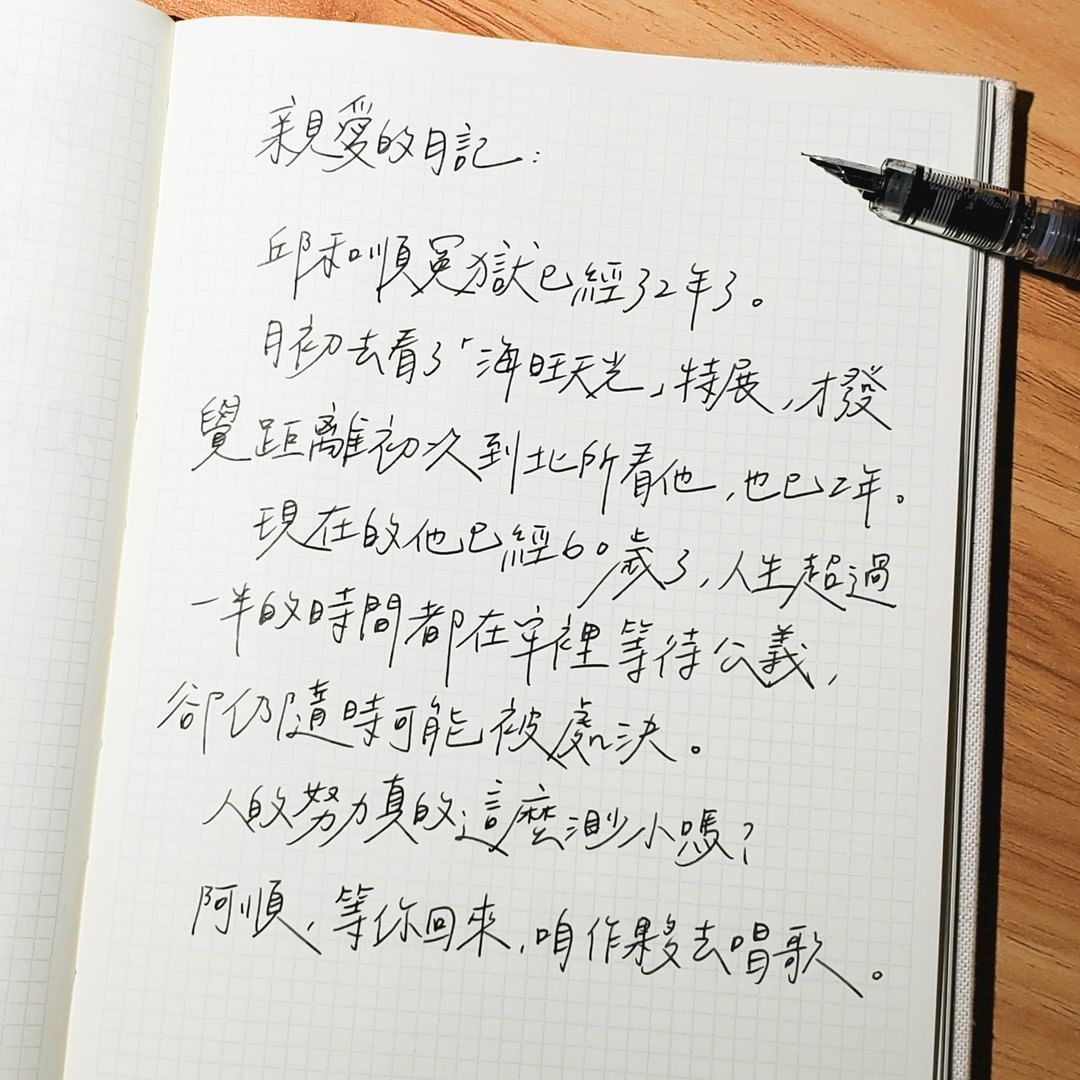 親愛的日記：
邱和順冤獄已經32年了。
月初去看了「海旺天光」特展，才發
覺距離初次到北所看他，也已2年。
現在的他已經60歲了，人生超過
一半的時間都在牢裡等待公義，
卻仍隨時可能被處決。
人的努力真的這麼渺小嗎？
阿順，等你回來，咱作夥去唱歌。